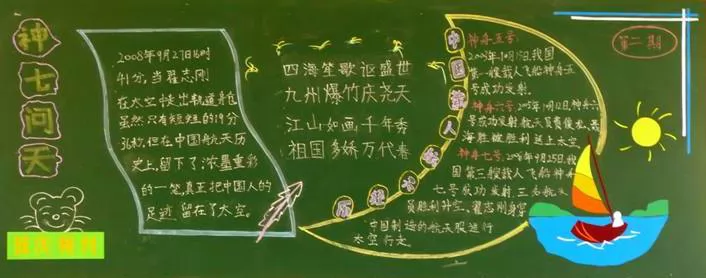 神七问天
2008年9月27日16时
41分，当翟志刚
在太空快出轨道舱
虽然只有短短的19分
36秒，但在中国航天历
史上，留下了浓墨重彩
的一笔，真正把中国人的
足迹留在了太空。
四海笙歌讴盛世
九州爆竹庆尧天
江山如画千年秀
祖国多娇万代春
中国载人
历程
神舟五号
2003年10月15日，我国
第一艘载人飞船神舟五
号成功发射。
神舟六号，2005年10月12日，神舟六
号成功发射，航天员费俊龙、聂
海胜被胜利送上太空。
神舟七号，2008年9月25日，我
国第三艘载人飞船神舟
七号成功发射，三名航天
员胜利升空，翟志刚身穿
中国制造的航天服进行
太空行走。
第二期